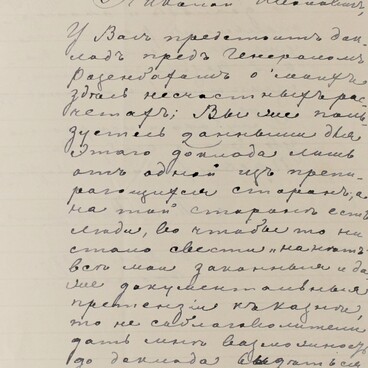 У Васъ предстоитъ док-
ладъ предъ Генераломъ
Розенбахомъ о моихъ
здѣсь несчастныхъ рас-
четахъ; Вы же поль-
зуетесь данными для
этого доклада лишь
отъ одной изъ препи-
рающихся сторонъ; а
на той сторонѣ есть
люди, во чтобы то ни
стало свести „на нѣтъ"
всѣ мои законныя и да-
же документальныя
претензіи къ казнѣ,
то не соблаговолите ли
дать мнѣ возможность
до доклада видѣться